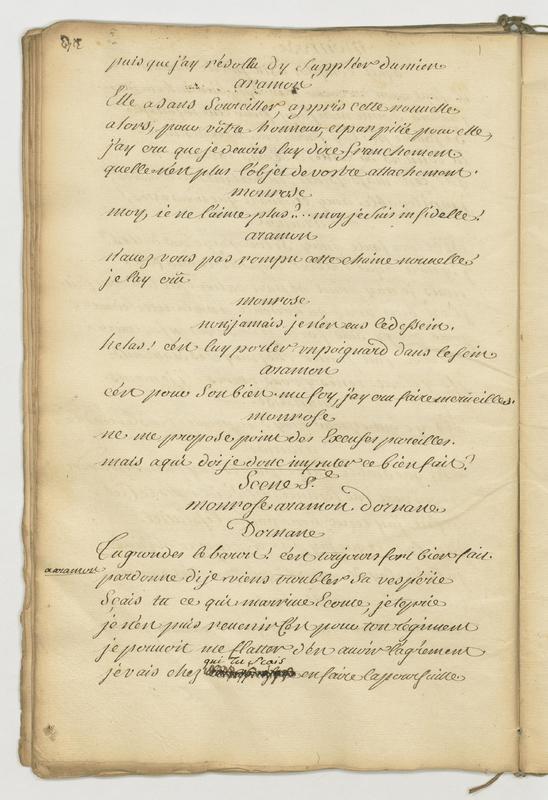 puisque j'ay résolu d'y suppléer du mien
aramon
Elle a sans sourciller, appris cette nouvelle
alors, pour vôtre honneur, et par pitié pour elle,
j'ay cru que je devois luy dire franchement
quelle n'est plus l'objet de vostre attachement.
monrose
moy, je ne l'aime plus?.. moy je suis infidelle!
aramon
n'avez vous pas rompu cette chaine nouvelle?
je l'ay crû
monrose
non, jamais, je n'en eus le dessein.
helas! c'est luy porter un poignard dans le sein
aramon
c'est pour son bien. ma foy, j'ay cru faire merveilles.
monrose
ne me propose point des Excuses pareilles.
mais a qui dois je donc imputer ce bienfait?
Scene 8.e
monrose aramon Dornane
Dornane
Tu grondes le baron! c'est toujours fort bien fait.
a aramon
pardonne di je viens troubler sa
Sçais tu ce qui m'arrive Ecoute, je te prie
je n'en puis revenir C'est pour ton régiment
je pouvoit me flatter d'en avoir l'agrément
qui tu sçais
je vais chez en faire la poursuitte